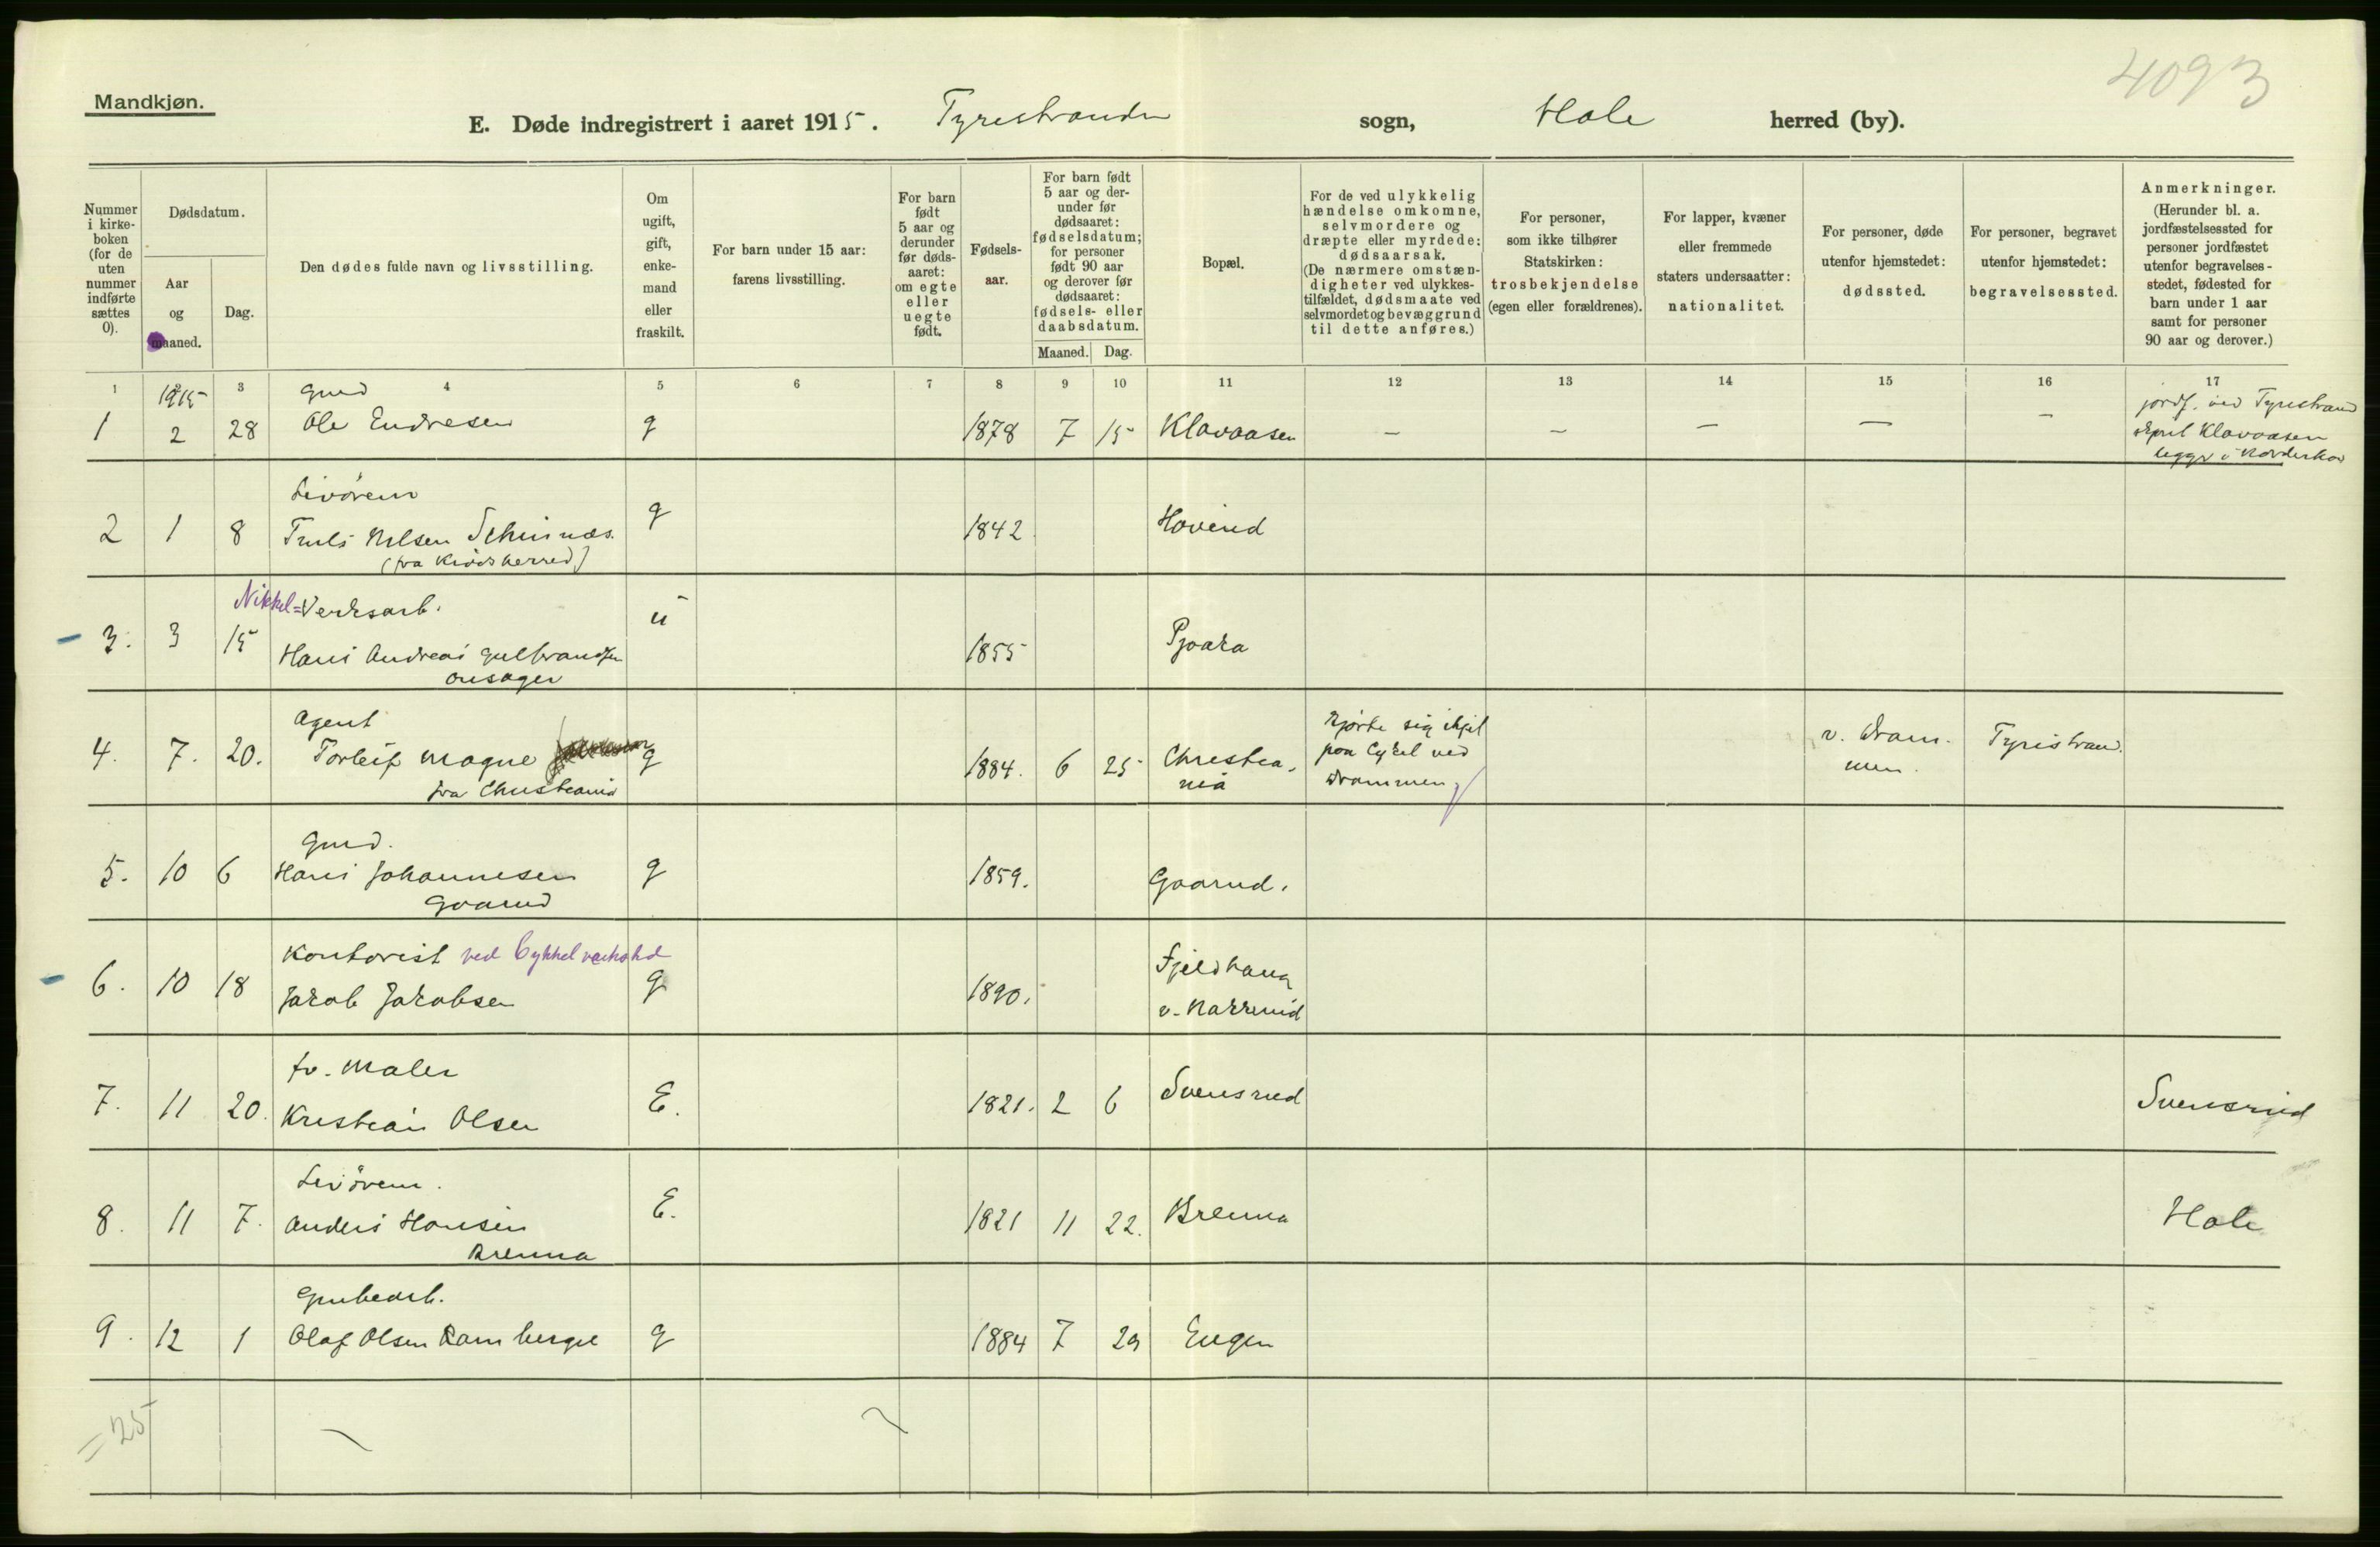 4093
Mandkjøn.
E. Døde indregistrert i aaret 1915. Tyristranden sogn, Hole herred (by).
Nummer
i kirke-
boken
(for de
uten
nummer
indførte
sættes
0).
Dødsdatum.
Aar
og
maaned.
Dag.
Den dødes fulde navn og livsstilling.
Om
ugift,
gift,
enke-
mand
eller
fraskilt.
For barn under 15 aar:
farens livsstilling.
For barn
født
5 aar og
derunder
før døds-
aaret:
om egte
eller
uegte
født.
Fødsels-
aar.
For barn født
5 aar og der-
under før
dødsaaret:
fødselsdatum;
for personer
født 90 aar
og derover før
dødsaaret:
fødsels- eller
daabsdatum.
Maaned. Dag.
Bopæl.
For de ved ulykkelig
hændelse omkomne,
selvmordere og
dræpte eller myrdede:
dødsaarsak.
(De nærmere omstæn-
digheter ved ulykkes-
tilfældet, dødsmaate ved
selvmordet og bevæggrund
til dette anføres.)
For personer,
som ikke tilhører
Statskirken:
trosbekjendelse
(egen eller forældrenes).
For lapper, kvæner
eller fremmede
staters undersaatter:
nationalitet.
For personer, døde
utenfor hjemstedet:
dødssted.
For personer, begravet
utenfor hjemstedet:
begravelsessted.
Anmerkninger.
(Herunder bl. a.
jordfæstelsessted for
personer jordfæstet
utenfor begravelses-
stedet, fødested for
barn under 1 aar
samt for personer
90 aar og derover.)
1 2 3 4 5 6 7 8 9 10 11 12 13 14 15 16 17
1915 Gmd jordf. ved Tyristrand
1 2 28 Ole Endresen g 1878 7 15 Klovaasen — — — — — Klovaasen
ligger i Norderhov
Livørem
2 1 8 Truls Nilsen g 1842 Hovind
(fra Krødsherred)
Nikkel=Verksarb.
3. 3 15 Hans Andreas Gulbrandsen u 1855 Pjaaka
Onsager
Agent
4. 7. 20. Torleif Magne g 1884. 6 25 Christia- kjørte sig ihjel v. Dram- Tyristrand.
fra Christiania nia paa Cykel ved men.
Drammen
Gmd.
5. 10 6 Hans Johannesen g 1859. Gaarud.
Gaarud
Kontorist ved Cykkelverksted
6. 10 18 Jakob Jakobsen g 1890. Fjeldhaug
v. Nakkerud
fv. Maler
7. 11 20. Kristian Olsen E. 1821. 2 6 Svensrud Svensrud
Livørem.
8. 11 7. Anders Hansen E. 1821 11 22. Brenna Hole
Brenna
Grubearb.
9. 12 1 Olaf Olsen Ramberget g 1884 7 29 Engen
=25